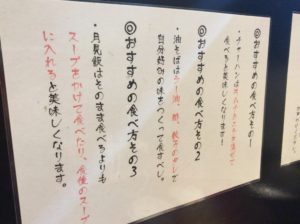 ◎おすすめの食べ方その1
・チャーハンは
食べると美味しくなります!
◎おすすめの食べ方その2
・油そばはラー油、酢、餃子のタレで
自分好みの味をつくって食すべし。
◎おすすめの食べ方その3
・月見飯はそのまま食べるよりも
スープをかけて食べたり、食後のスープ
に入れると美味しくなります。